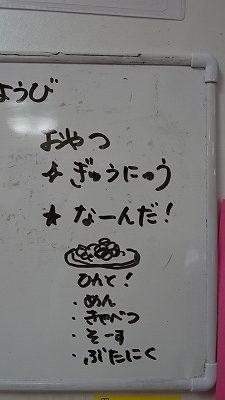 ようび
おやつ
☆ ぎゅうにゅう
★ なーんだ!
ひんと!
・めん
・きゃべつ
・そーす
・ぶたにく